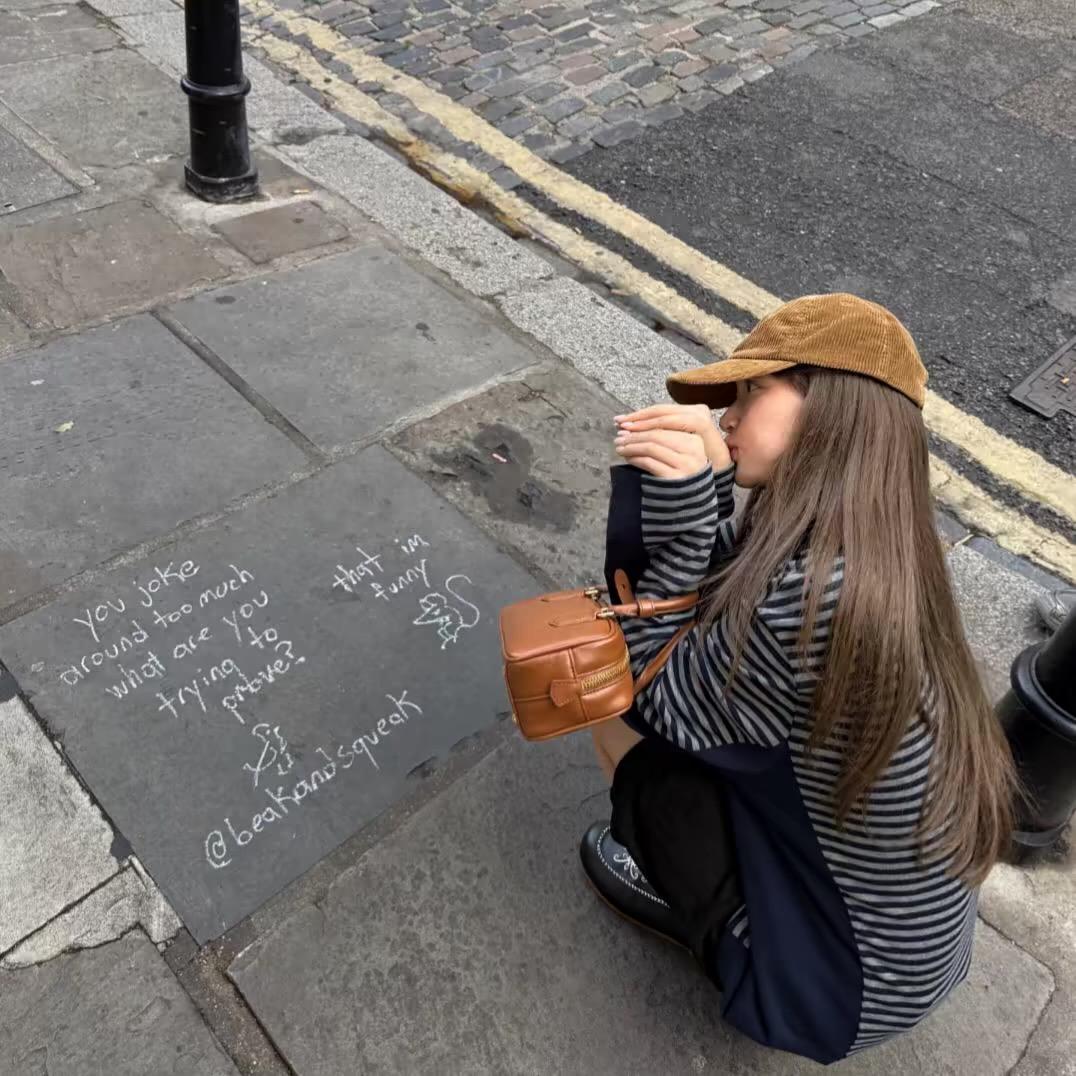 you joke
around too much
what are you
trying to
prove?
that im
funny
@beakandsqueak